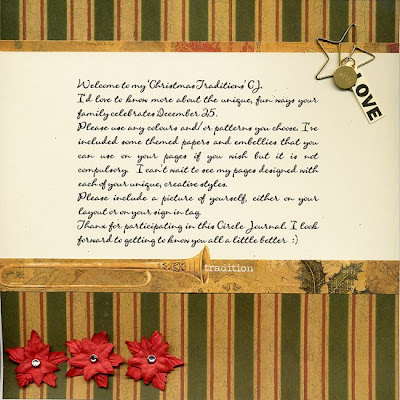 LOVE
Welcome to my 'Christmas Traditions' CJ.
I'd love to know more about the unique, fun ways your
family celebrates December 25.
Please use any colours and/or patterns you choose. I've
included some themed papers and embellies that you
can use on your pages if you wish but it is not
compulsory. I can't wait to see my pages designed with
each of your unique, creative styles.
Please include a picture of yourself, either on your
layout or on your sign in tag.
Thanx for participating in this Circle Journal. I look
forward to getting to know you all a little better :)
tradition